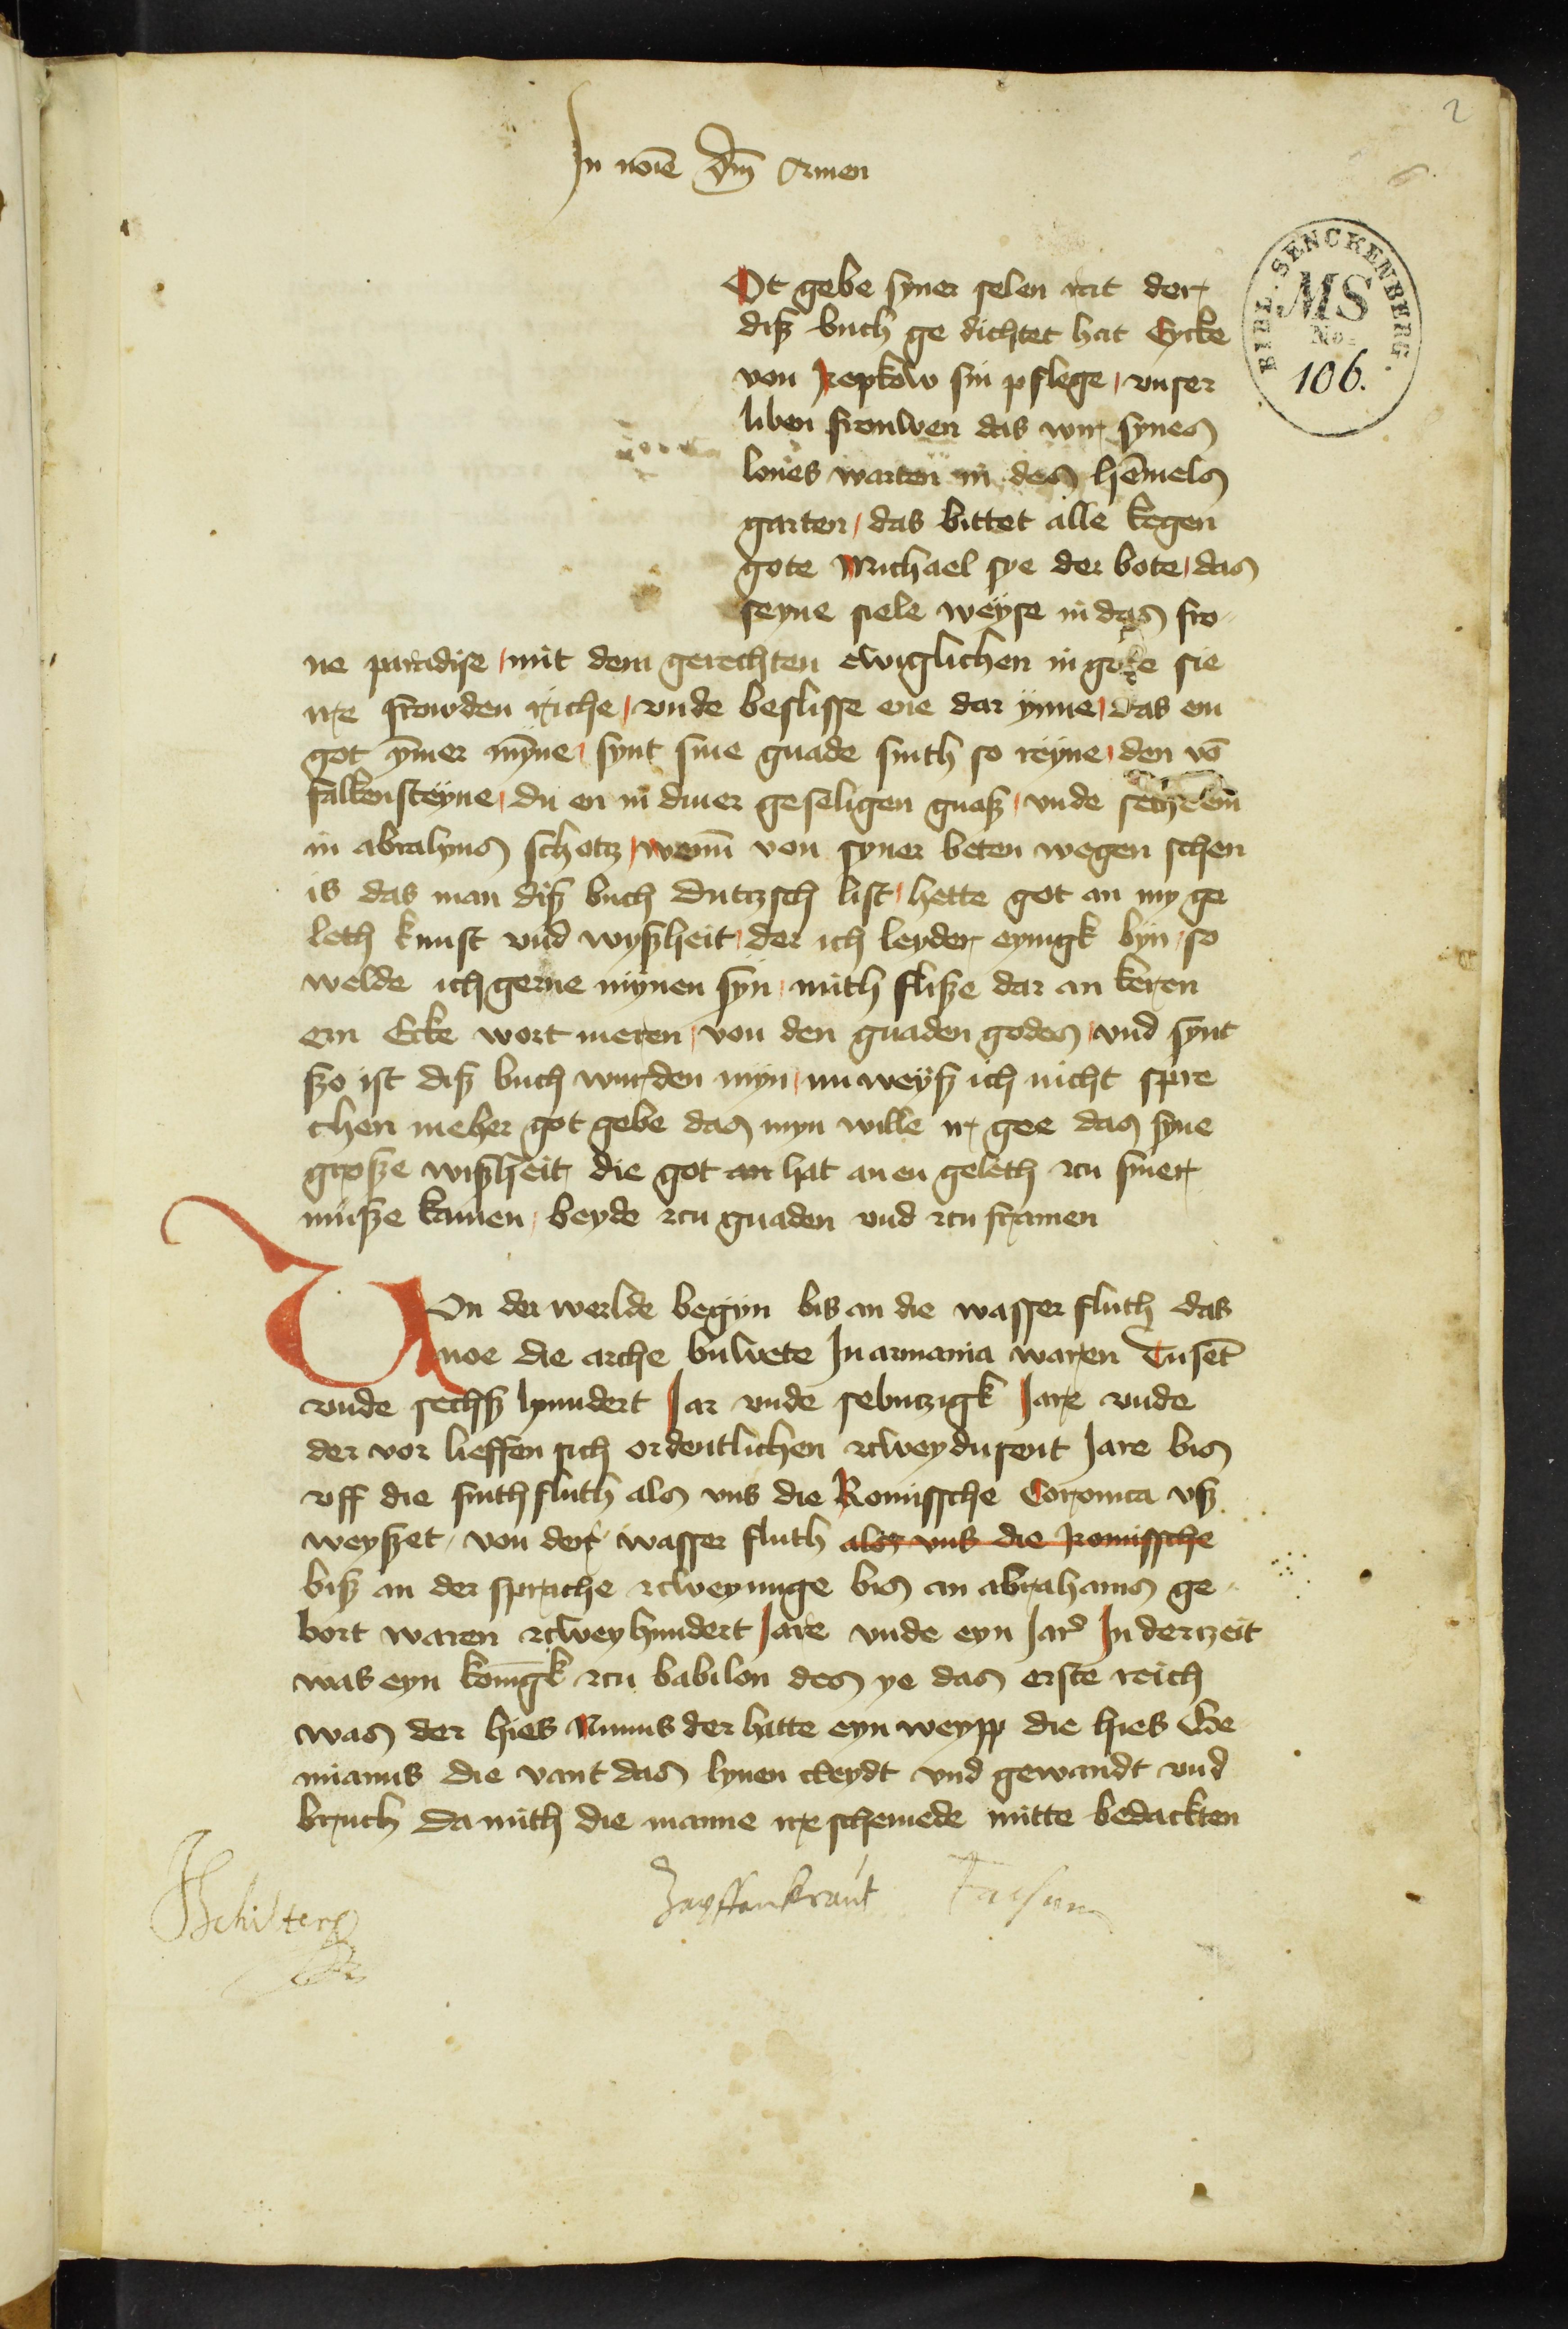 2
In noīe dm̄ Amen
BIBL. SENCKENBERG.
MS
No.
106.
Ot gebe syner selen rat der
disz buch ge dichtet hat Eycke
von Repkow sin pflege, vnser
liben frouwen das wir synes
lones warten in des hēmels
garten, das bittet alle kegen
gote Michael sye der bote, das
seyne siele weyse in das fro
ne paradise, mit dem gerechten ewiglichen in gote sie
ire frowden riche, vnde beslisse ene dar ynne, das em
got ym̄er myn̄e, synt sine gnade sinth so reyne, den vō
falkensteyne, du en in diner geseligen gnasz, vnde
in abrahms schotz, wenn̄ von syner beten wegen schen
is das man disz buch dutzsch list, hette got an my ge
leth kunst vnd wyszheit, der ich leyder eynigk byn, so
welde ich gerne mynen syn, mith flisze dar an keren
ern Ecke wort meren, von den gnaden godes, vnd synt
szo ist disz buch wurden myn, nu weysz ich nicht spre
chen meher got gebe das myn wille ir gee das syne
grosze wiszheit die got an hat an en geleth zcu siner
müsze kamen, beyde zcu gnaden vnd zcu framen
Von der werlde begyn bis an die wasser fluth das
noe die arche buwete In armania waren Tusēt
vnde sechsz hundert Jar vnde sebntzigk Jare vnde
der vor lieffen sich ordentlichen zcwey dusent Jare bis
vff die sinth fluth als vns die Romissche Coronica vsz
weyszet, von der wasser fluth als vns die Romissche
bisz an der sprache zcweyunge bis an abrahams ge
bort waren zcwey hundert Jare vnde eyn Jar In der zeit
was eyn konīgk zcu babilon des ye das erste reich
was der hies Ninus der hatte eyn weypp die hies Se
mianus die vant das lynen cleydt vnd gewandt vnd
bruch da mith die manne ire schemede mitte bedackten
JSchilters
Zayffenkraut